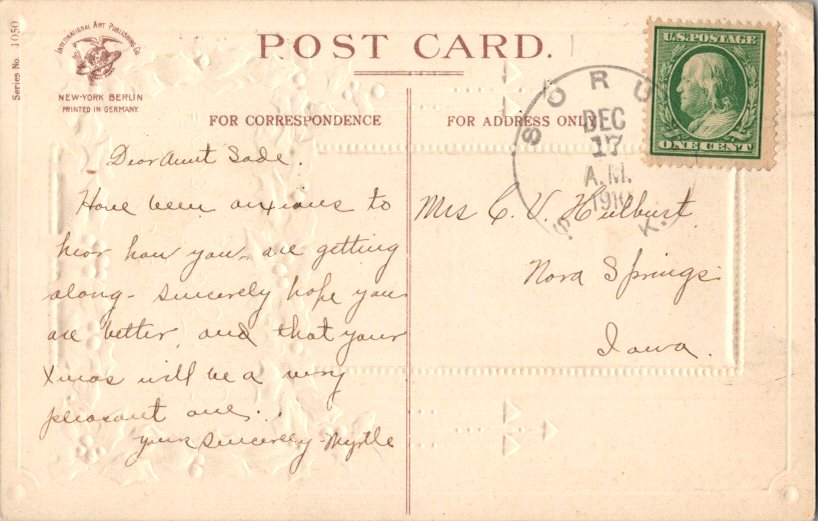 Series No. 1050
INTERNATIONAL ART PUBLISHING CO.
NEW-YORK BERLIN
PRINTED IN GERMANY
POST CARD.
FOR CORRESPONDENCE
FOR ADDRESS ONLY
U.S. POSTAGE
ONE CENT
SORU
DEC
17
A.M.
1910
S. K.
Dear Aunt Sade.
Have been anxious to
hear how you are getting
along - sincerely hope you
are better, and that your
Xmas will be a very
pleasant one.
your sincerely - Myrtle
Mrs C. V. Hulburt.
Nora Springs
Iowa.